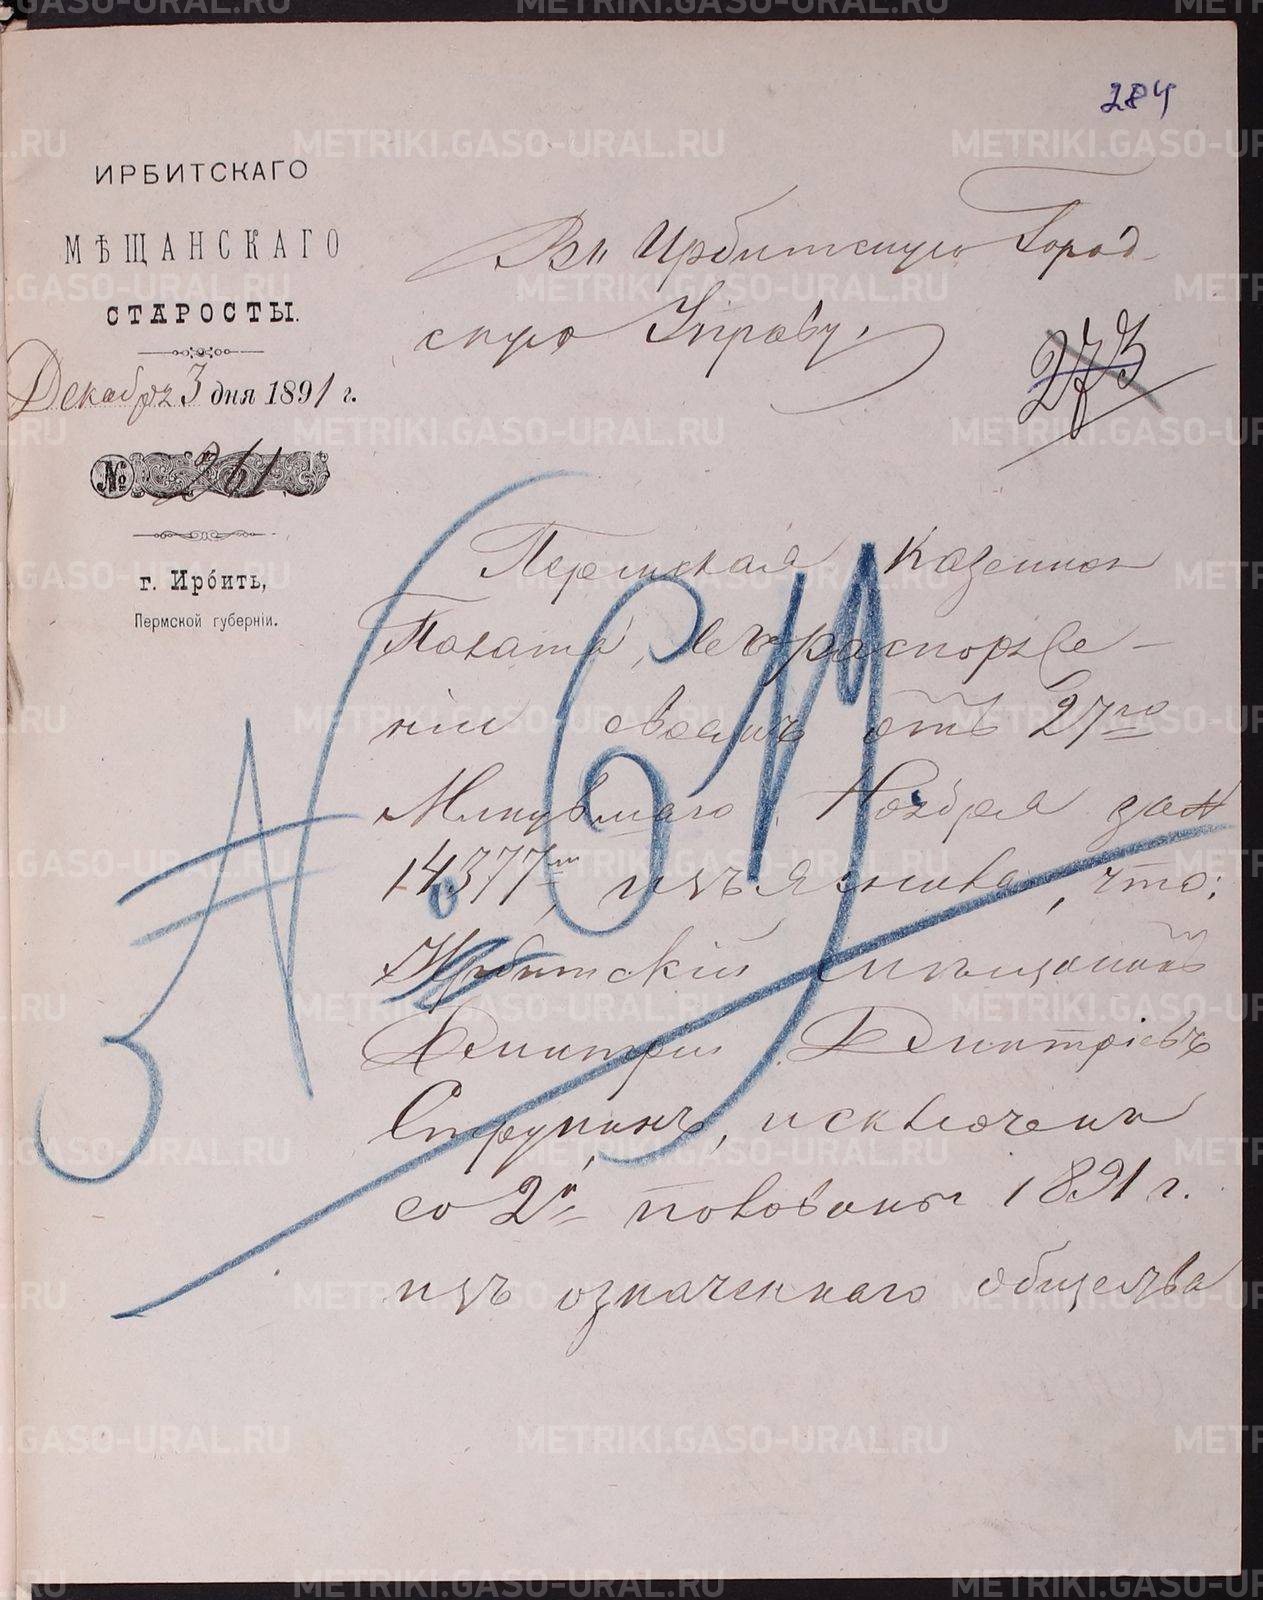 284
ИРБИТСКАГО
МѢЩАНСКАГО
СТАРОСТЫ.
Декабря 3 дня 1891 г.
№ 261
г. Ирбить,
Пермской губерніи.
Въ Ирбитскую Город-
скую Управу.
273
Пермская Казенная
Палата, въ распоряже-
ніи своемъ отъ 27го
Минувшаго Ноября за №
14377м, изъяснила, что:
Ирбитскій мѣщанинъ
Дмитрій Дмитріевъ
исключенъ
со 2й половины 1891 г.
изъ означеннаго общества
№
METRIKI.GASO-URAL.RU